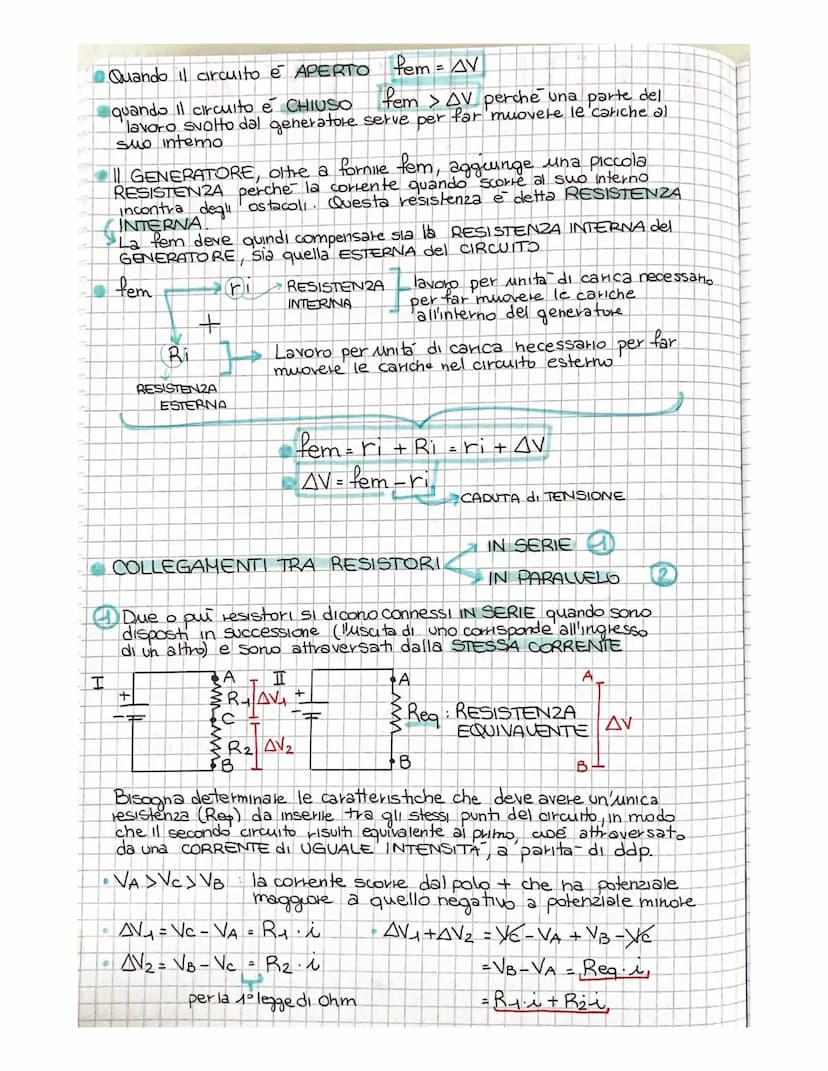 Quando il circuito è APERTO fem = ΔV
quando il circuito è CHIUSO fem > ΔV perchè una parte del
lavoro svolto dal generatore serve per far muovere le cariche al
suo interno
Il GENERATORE, oltre a fornire fem, aggiunge una piccola
RESISTENZA perchè la corrente quando scorre al suo interno
incontra degli ostacoli. Questa resistenza è detta RESISTENZA
INTERNA.
La fem deve quindi compensare sia la RESISTENZA INTERNA del
GENERATORE, sia quella ESTERNA del CIRCUITO
fem → ri → RESISTENZA INTERNA
lavoro per unità di carica necessario
per far muovere le cariche
all'interno del generatore
+
Ri → Lavoro per unità di carica necessario per far
muovere le cariche nel circuito esterno
RESISTENZA
ESTERNA
fem = ri + Ri = ri + ΔV
ΔV = fem - ri
CADUTA di TENSIONE
COLLEGAMENTI TRA RESISTORI
IN SERIE 1
IN PARALLELO 2
1 Due o più resistori si dicono connessi IN SERIE quando sono
disposti in successione (l'uscita di uno corrisponde all'ingresso
di un altro) e sono attraversati dalla STESSA CORRENTE
I + - A R1 ΔV1 C R2 ΔV2 B
II + - A Req : RESISTENZA EQUIVALENTE B
A ΔV B
Bisogna determinare le caratteristiche che deve avere un'unica
resistenza (Req) da inserire tra gli stessi punti del circuito, in modo
che il secondo circuito risulti equivalente al primo, cioè attraversato
da una CORRENTE di UGUALE INTENSITÀ, a parità di ddp.
VA > VC > VB : la corrente scorre dal polo + che ha potenziale
maggiore a quello negativo a potenziale minore
ΔV1 = VC - VA = R1 · i
ΔV2 = VB - VC = R2 · i
per la 1° legge di Ohm
ΔV1 + ΔV2 = VC - VA + VB - VC
= VB - VA = Req · i
= R1 · i + R2 · i